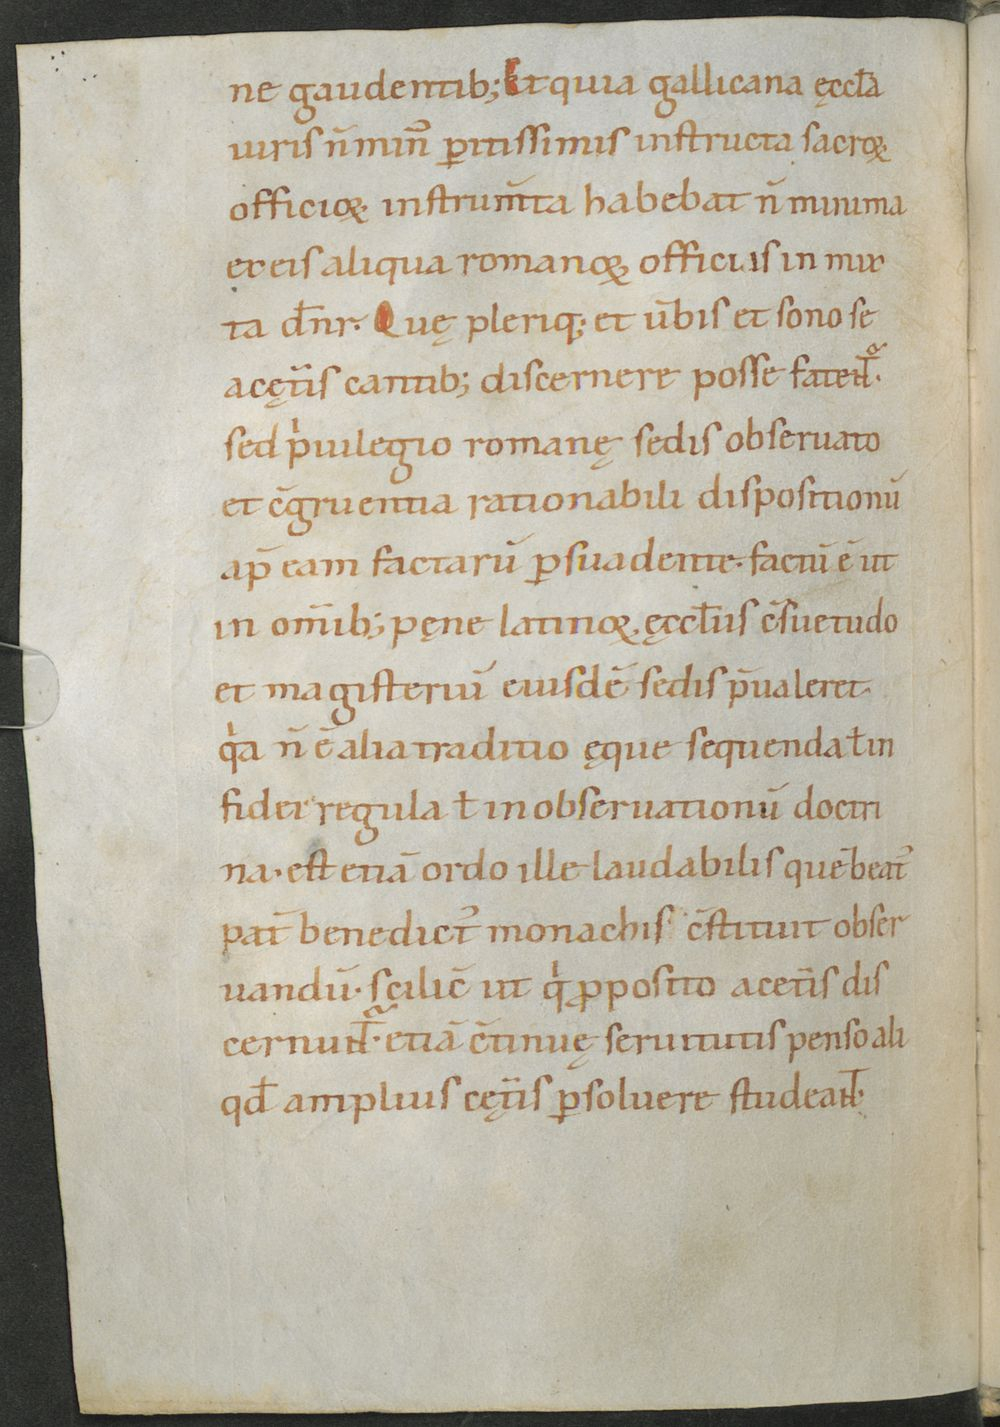 ne gaudentib; Et quia gallicana ęccła
uiris n̄ min᷒ p̱itissimis instructa sacroꝝ
officioꝝ instrum̄ta habebat n̄ minima
ex eis aliqua romanoꝝ officiis in mix
ta d̄nr. Quę pleriq; et ūbis et sono se
a cęt̄is cantib; discernere posse fatent̄ᷓ.
sed p̍uilegio romanę sedis obseruato
et c̄gruentia rationabili dispositionū
ap̄ eam factarū ꝑsuadente. factū ē ut
in om̄ib; pęne latinoꝝ ęccłiis c̄suetudo
et magisteriū eiusdē sedis p̄ualeret.
q̍a n̄ ē alia traditio ęque sequenda ł in
fidei regula ł in obseruationū doctri
na. est etiā ordo ille laudabilis quē beat᷒
pat̄ benedict᷒ monachis c̄stituit obser
uandū. scilic̄ ut q̍ ꝓposito a cet̄is dis
cernunt̄ᷓ. etiā c̄tinuę seruitutis penso ali
qd̄ amplius cęt̄is ꝑsoluere studeant.